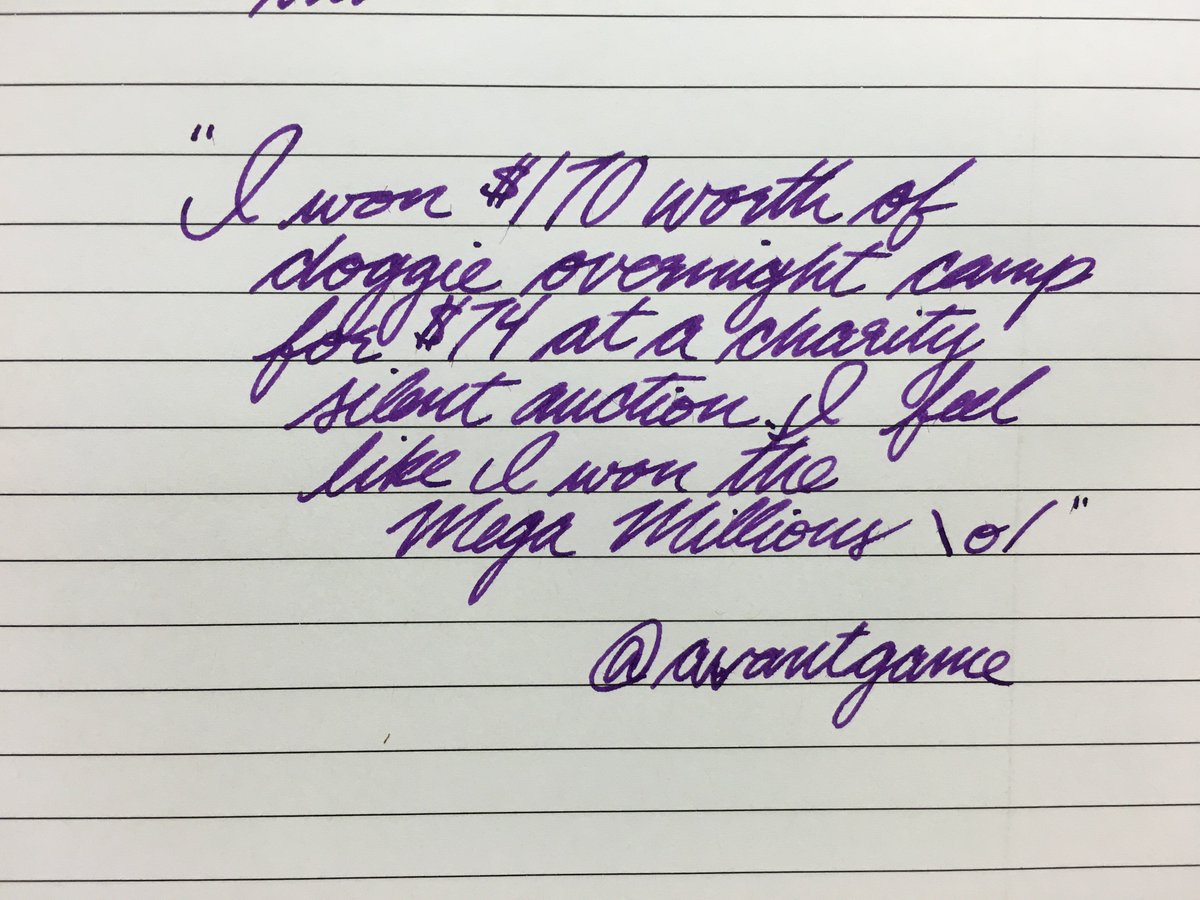 "I won $170 worth of
doggie overnight camp
for $74 at a charity
silent auction. I feel
like I won the
Mega Millions \o/"
@avantgame